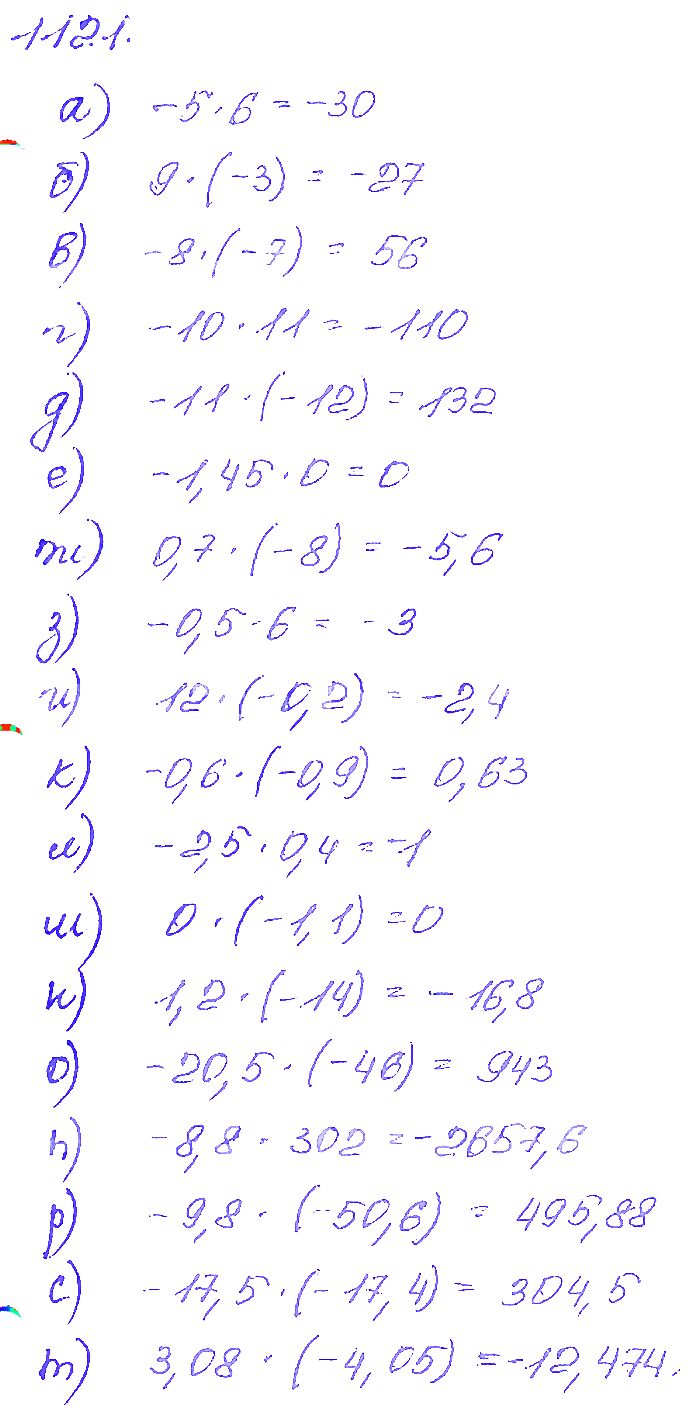 1121.
а) -5·6 = -30
б) 9·(-3) = -27
в) -8·(-7) = 56
г) -10·11 = -110
д) -11·(-12) = 132
е) -1,45·0 = 0
ж) 0,7·(-8) = -5,6
з) -0,5·6 = -3
и) 12·(-0,2) = -2,4
к) -0,6·(-0,9) = 0,63
л) -2,5·0,4 = -1
м) 0·(-1,1) = 0
н) 1,2·(-14) = -16,8
о) -20,5·(-46) = 943
п) -8,8·302 = -2657,6
р) -9,8·(-50,6) = 495,88
с) -17,5·(-17,4) = 304,5
т) 3,08·(-4,05) = -12,474.